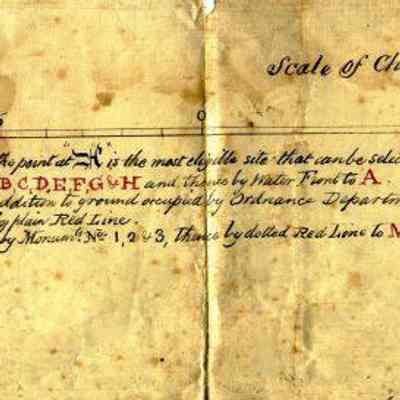 Scale of Ch
0
the point at "A" is the most eligible site that can be selec
B, C, D, E, F, G & H and thence by Water Front to A.
addition to ground occupied by Ordnance Departm
plain Red Line.
by Monumts. Nos. 1, 2 & 3, thence by dotted Red Line to M